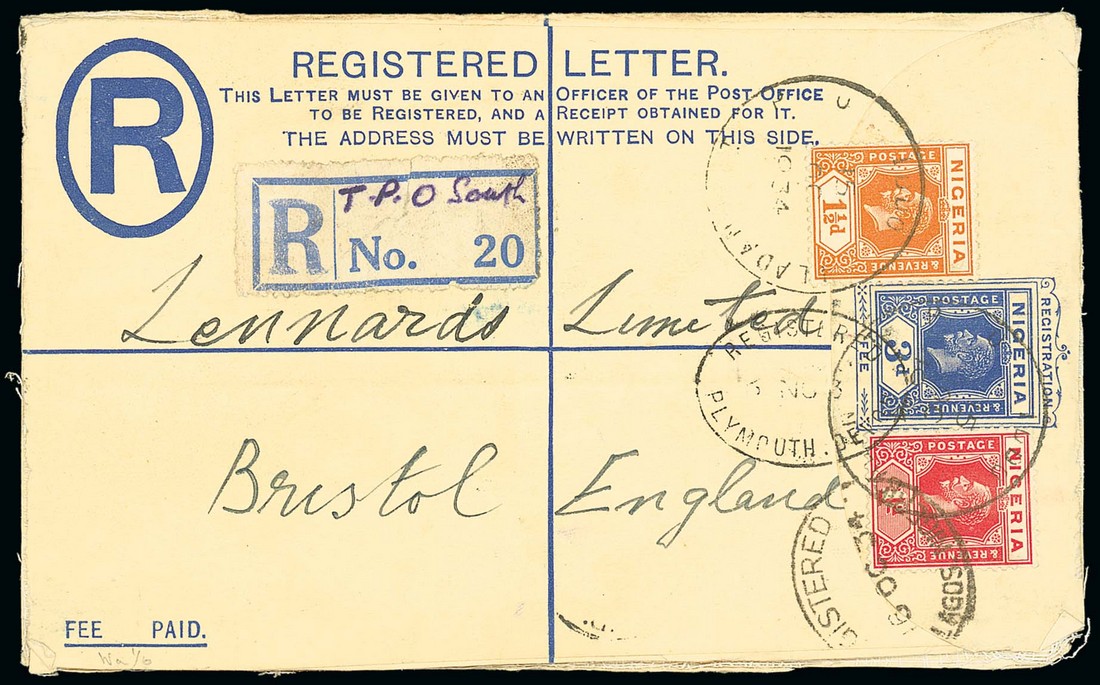 R
REGISTERED LETTER.
THIS LETTER MUST BE GIVEN TO AN OFFICER OF THE POST OFFICE
TO BE REGISTERED, AND A RECEIPT OBTAINED FOR IT.
THE ADDRESS MUST BE WRITTEN ON THIS SIDE.
T.P.O South
R No. 20
POSTAGE
NIGERIA
1½d
& REVENUE
Lennards Limited
POSTAGE
NIGERIA
3d
& REVENUE
REGISTRATION
FEE
REGISTERED
NO
PLYMOUTH.
POSTAGE
NIGERIA
& REVENUE
Bristol England
FEE PAID.